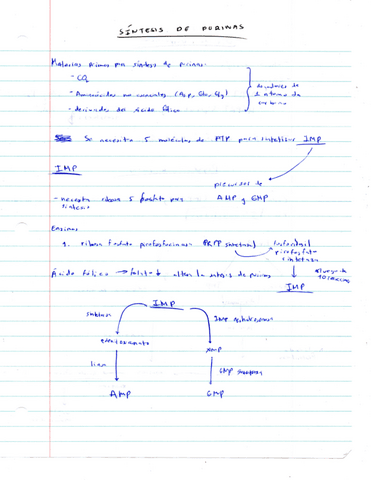 SÍNTESIS DE PURINAS
Materias primas para síntesis de purinas
- CO₂
- Aminoácidos no esenciales (Asp, Gln, Gly)
- derivados del ácido fólico
donadores de
1 átomo de
carbono
Se necesita 5 moléculas de ATP para sintetizar IMP
IMP
precursor de
AMP y GMP
- necesita ribosa 5 fosfato para
síntesis
Enzimas
1. ribosa fosfato pirofosfocinasa (PRPP sintetasa)
fosforibosil
pirofosfato
sintetasa
IMP
Ácido fólico → folato altera la síntesis de purinas
IMP
sintetasa
IMP deshidrogenasa
XMP
liasa
GMP sintetasa
AMP
GMP